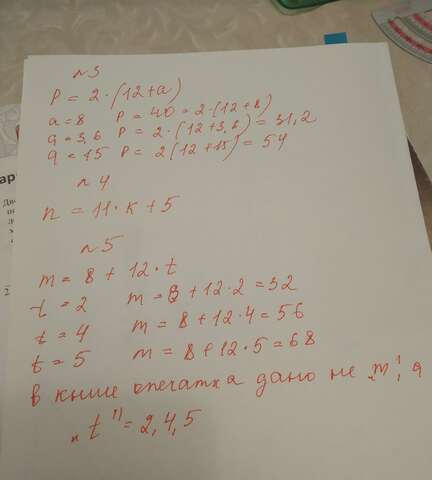 n 3
P = 2 · (12 + a)
a = 8 P = 40 = 2 · (12 + 8)
a = 3,6 P = 2 · (12 + 3,6) = 31,2
a = 15 P = 2 (12 + 15) = 54
n 4
n = 11 · k + 5
n 5
m = 8 + 12 · t
t = 2 m = 8 + 12 · 2 = 32
t = 4 m = 8 + 12 · 4 = 56
t = 5 m = 8 + 12 · 5 = 68
в книге опечатка дано не "m", а
"t" = 2, 4, 5